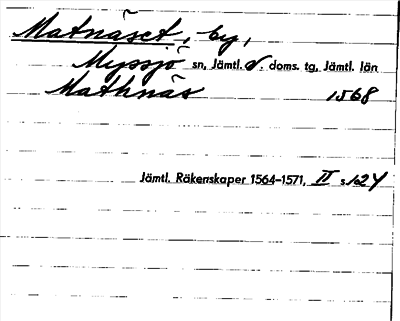 Matnäset, by,
Myssjö sn, Jämtl. v. doms. tg, Jämtl. län
Mathnäs 1568
Jämtl. Räkenskaper 1564–1571, II s. 124